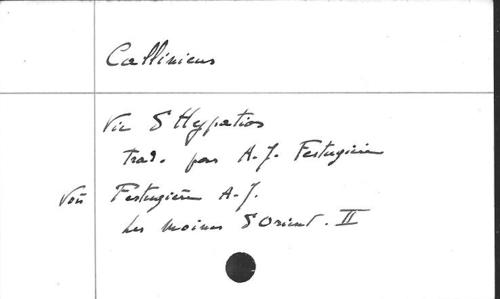 Callinicus
Vie d'Hypatios
trad. par A.-J. Festugière
Voir Festugière A.-J.
Les moines d'Orient. II